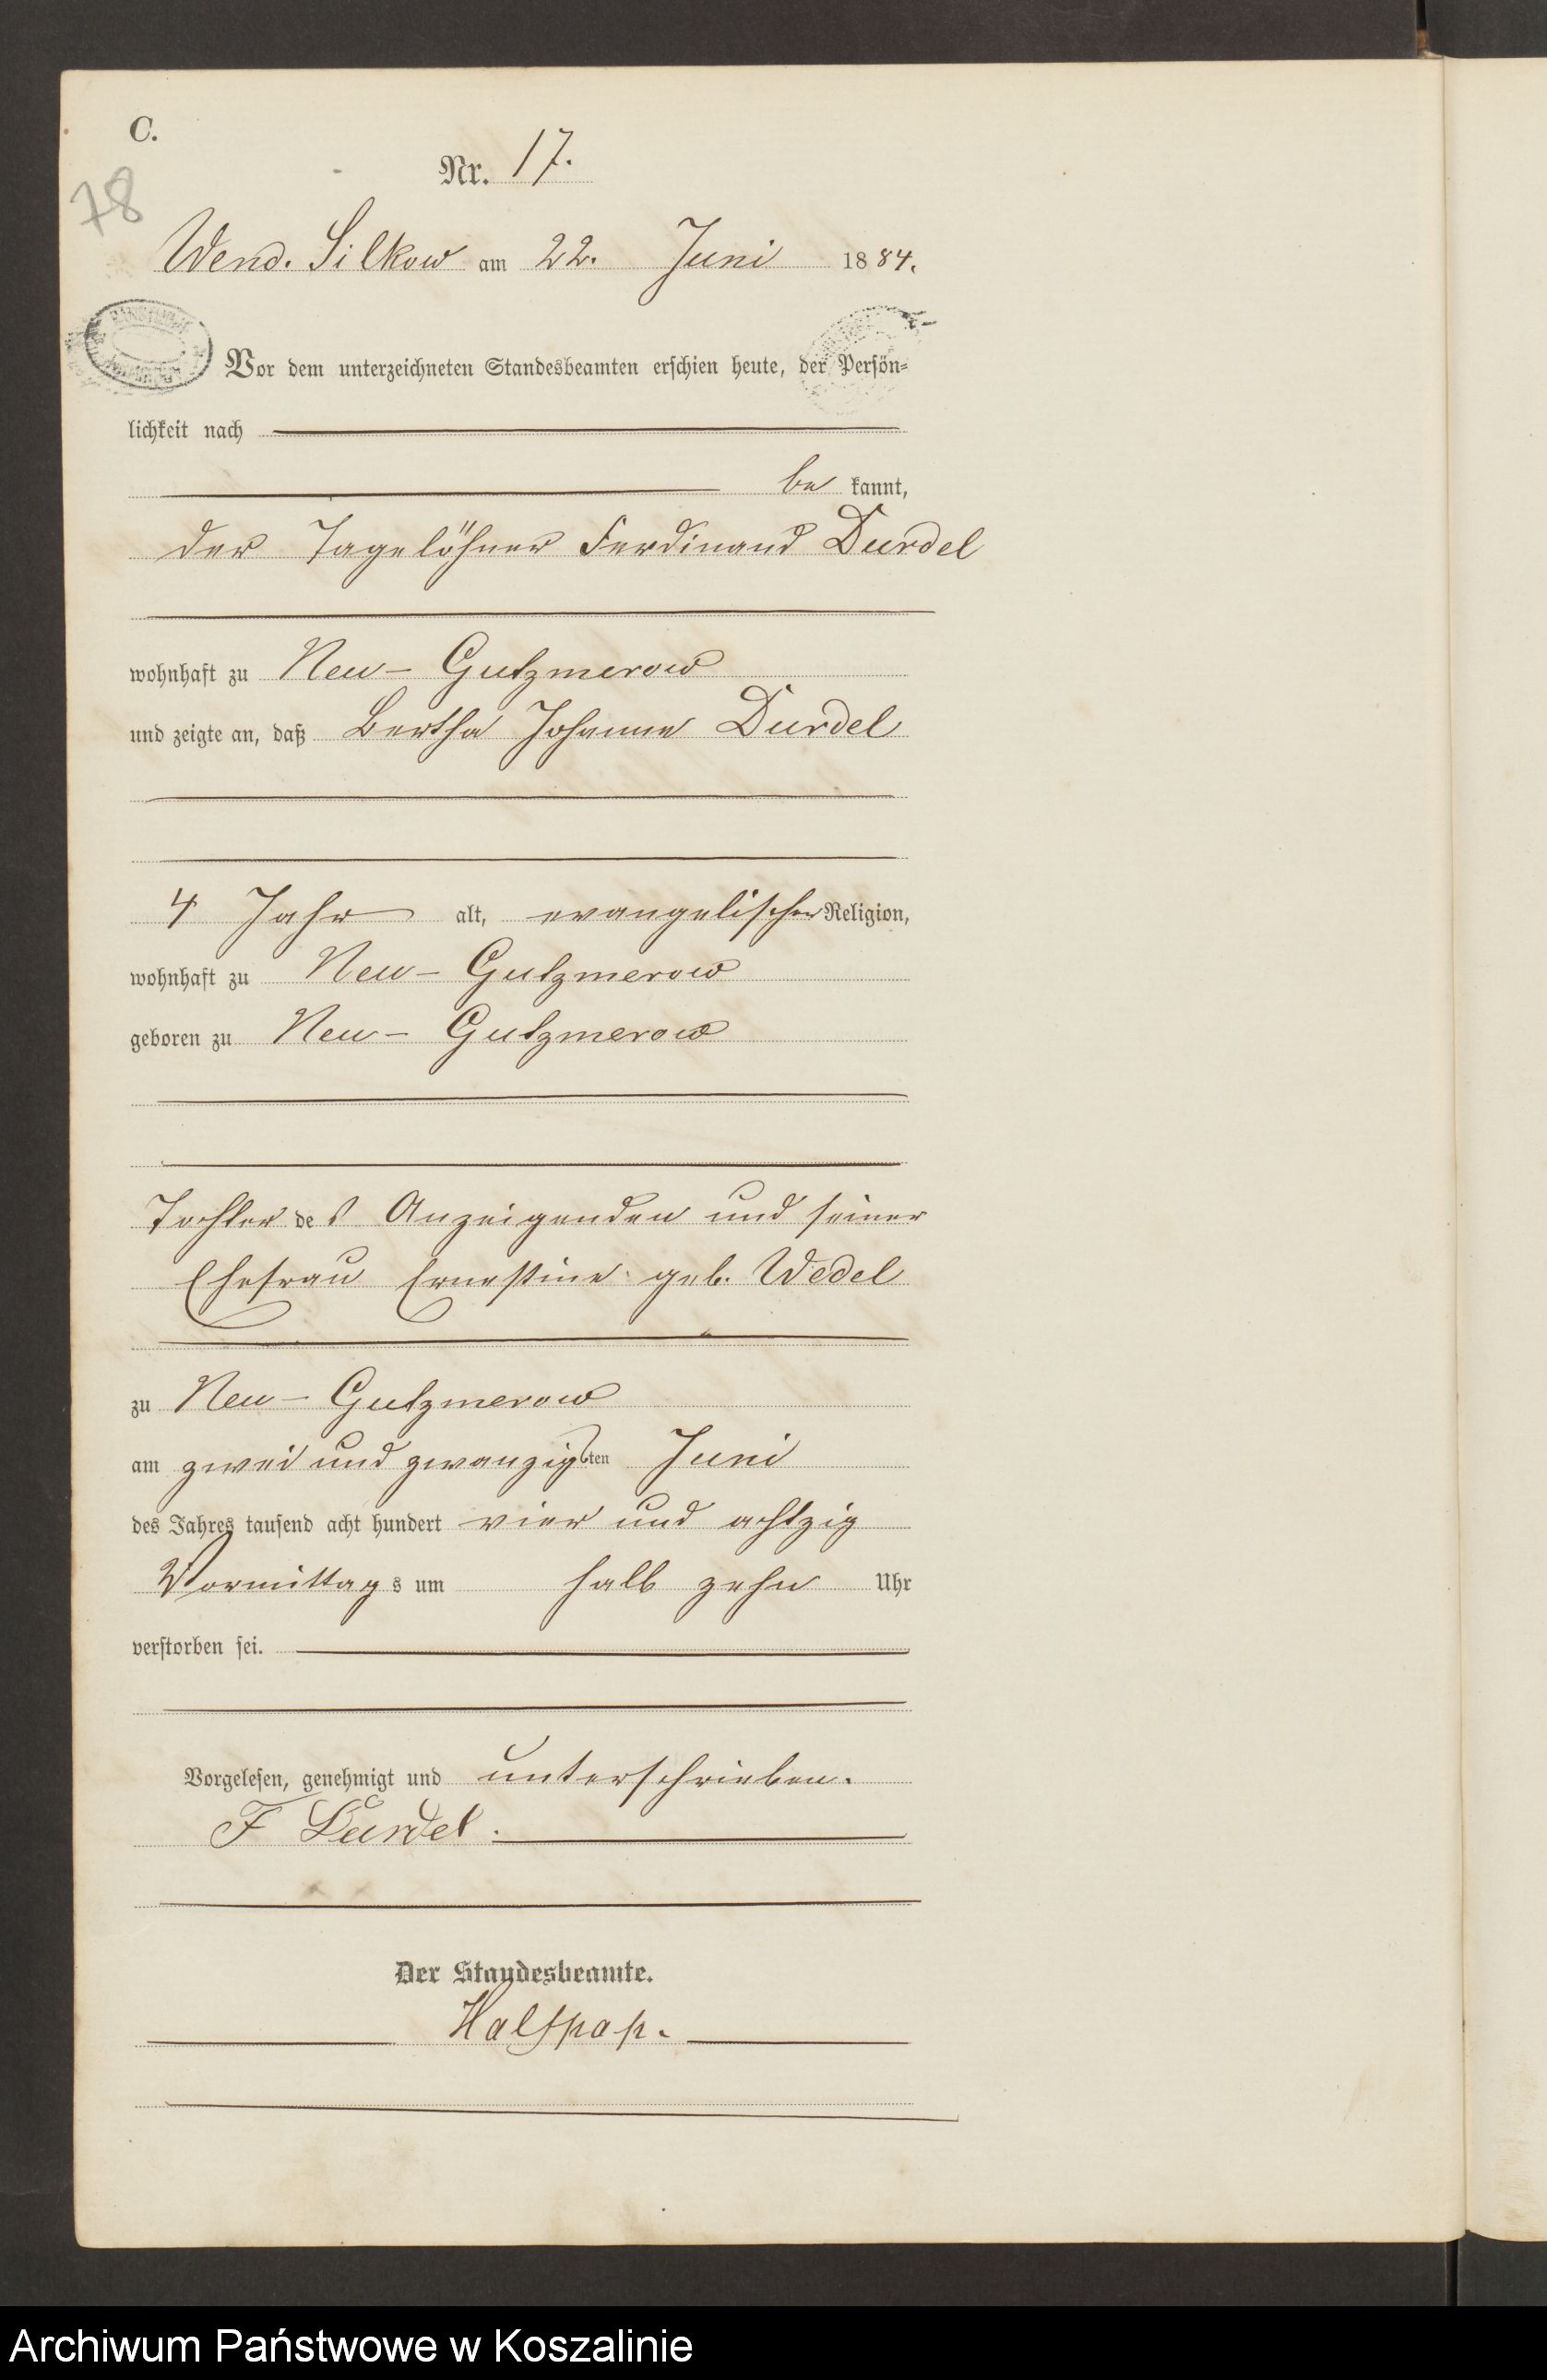 C.
78
Nr. 17.
Wend. Silkow am 22. Juni 1884.
Vor dem unterzeichneten Standesbeamten erschien heute, der Persön-
lichkeit nach
be kannt,
der Tagelöhner Ferdinand Durdel
wohnhaft zu Neu-Gutzmerow
und zeigte an, daß Bertha Johanne Durdel
4 Jahr alt, evangelischer Religion,
wohnhaft zu Neu-Gutzmerow
geboren zu Neu-Gutzmerow
Tochter des Anzeigenden und seiner
Ehefrau Ernestine geb. Wedel
zu Neu-Gutzmerow
am zwei und zwanzigsten Juni
des Jahres tausend acht hundert vier und achtzig
Vormittags um halb zehn Uhr
verstorben sei.
Vorgelesen, genehmigt und unterschrieben.
F Durdel.
Der Standesbeamte.
Halfpap.
Archiwum Państwowe w Koszalinie